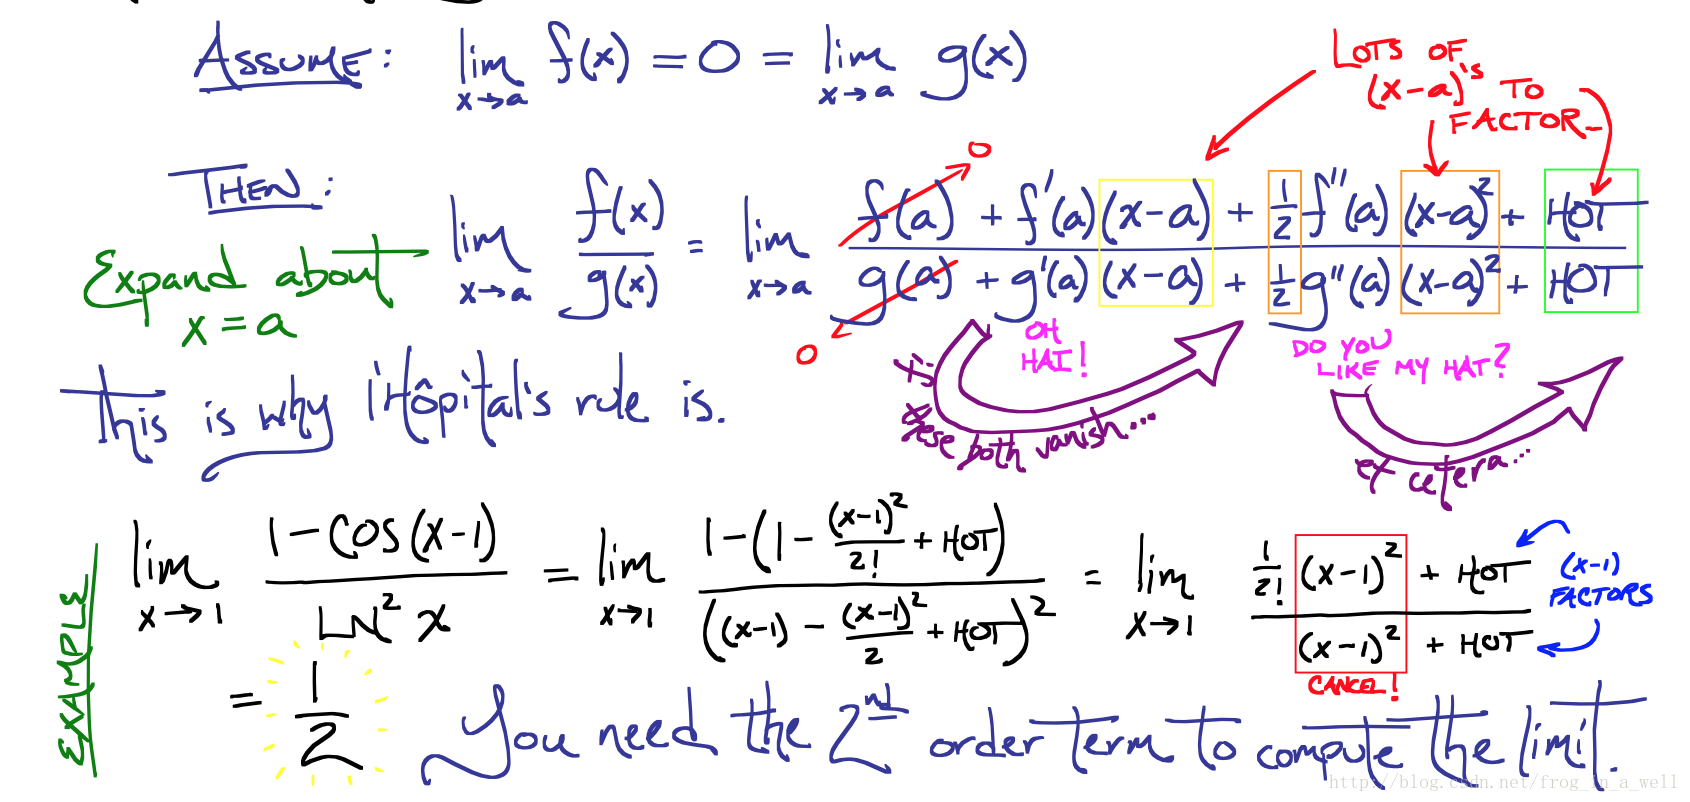 ASSUME: lim x→a f(x) = 0 = lim x→a g(x)
LOTS OF
(x-a)'s TO
FACTOR
THEN: lim x→a f(x)/g(x) = lim x→a (f(a) + f'(a)(x-a) + 1/2 f''(a)(x-a)² + HOT)/(g(a) + g'(a)(x-a) + 1/2 g''(a)(x-a)² + HOT)
0
0
Expand about
x = a
OH
HAI!
DO YOU
LIKE MY HAT?
if these both vanish...
et cetera...
this is why l'Hôpital's rule is.
EXAMPLE
lim x→1 (1-COS(x-1))/(LN² x) = lim x→1 (1-(1-(x-1)²/2! + HOT))/((x-1) - (x-1)²/2 + HOT)² = lim x→1 (1/2! (x-1)² + HOT)/((x-1)² + HOT)
(x-1)
FACTORS
CANCEL!
= 1/2
You need the 2nd order term to compute the limit.
http://blog.csdn.net/frog_in_a_well